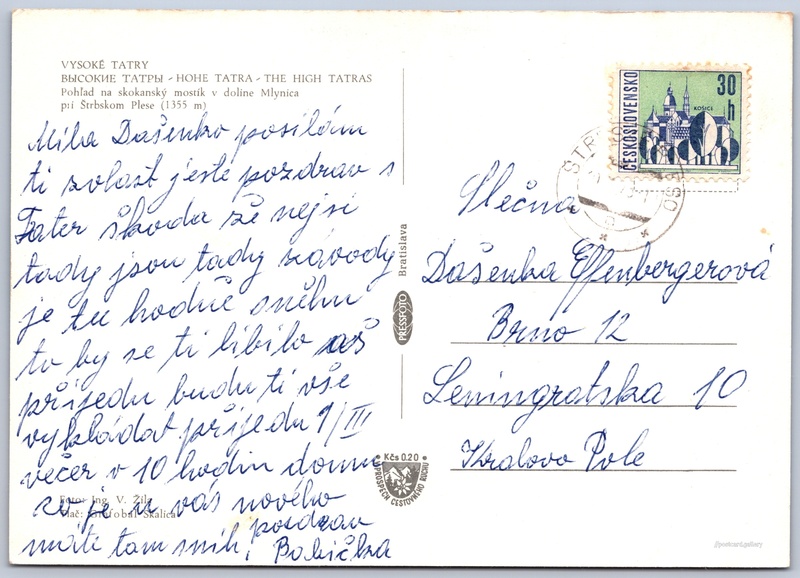 VYSOKÉ TATRY
ВЫСОКИЕ ТАТРЫ - HOHE TATRA - THE HIGH TATRAS
Pohľad na skokanský mostík v doline Mlynica
pri Štrbskom Plese (1355 m)
Milá Dašenko posílám
ti zvlast ještě pozdrav s
Tater škoda že nejsi
tady jsou tady závody
je tu hodně sněhu
to by se ti líbilo až
příjedu budu ti vše
vykládat příjedu 1/III
večer v 10 hodin domu
co je u vás nového
máte tam sníh!
pozdrav
Babička
Foto: Ing. V. Žila
Tlač: Grafobal Skalica
Bratislava
PRESSFOTO
Kčs 0.20
V PROSPECH CESTOVNÉHO RUCHU
ČESKOSLOVENSKO
30 h
KOŠICE
Slečna
Dašenka Effenbergerová
Brno 12
Leningratska 10
Kralovo Pole
postcard.gallery